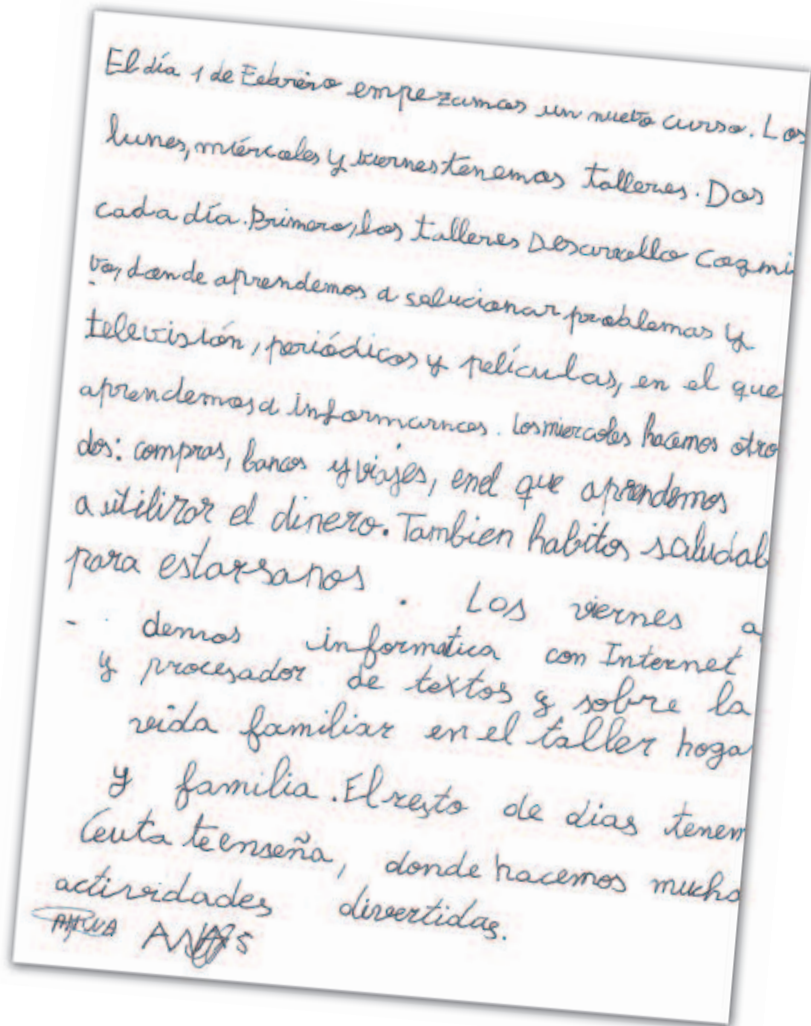 El día 1 de Febrero empezamos un nuevo curso. Los
lunes, miércoles y viernes tenemos talleres. Dos
cada día. Primero, los talleres Desarrollo Cogni
vo, donde aprendemos a solucionar problemas y
televisión, periódicos y películas, en el que
aprendemos a informarnos. Los miercoles hacemos otro
dos: compras, bancos y viajes, en el que aprendemos
a utilizar el dinero. Tambien habitos saludabl
para estar sanos. Los viernes a
demos informática con Internet
y procesador de textos y sobre la
vida familiar en el taller hoga
y familia. El resto de dias tenem
Ceuta te enseña, donde hacemos mucha
actividades divertidas.